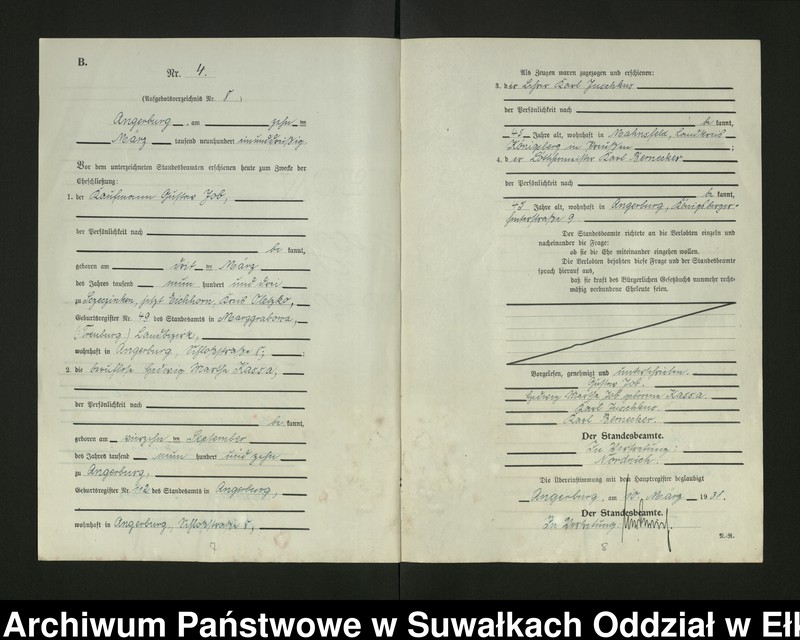 B.
Nr. 4.
(Aufgebotsverzeichnis Nr. 5)
Angerburg, am zehn ten
März tausend neunhundert einunddreißig
Vor dem unterzeichneten Standesbeamten erschienen heute zum Zwecke der
Eheschließung:
1. der Kaufmann Gustav Job,
der Persönlichkeit nach
be kannt,
geboren am dritten März
des Jahres tausend neun hundert und drei
zu jetzt Eichhorn, Kreis Oletzko,
Geburtsregister Nr. 49 des Standesamts in Marggrabowa,
(Treuburg) Landbezirk,
wohnhaft in Angerburg, Schloßstraße 5;
2. die berufslose Hedwig Martha Kassa,
der Persönlichkeit nach
be kannt,
geboren am vierzehn ten September
des Jahres tausend neun hundert und zehn
zu Angerburg,
Geburtsregister Nr. 112 des Standesamts in Angerburg,
wohnhaft in Angerburg, Schloßstraße 5,
7
Als Zeugen waren zugezogen und erschienen:
3. der Lehrer Karl Juschkus
der Persönlichkeit nach
be kannt,
Jahre alt, wohnhaft in Mahnsfeld, Landkreis
Königsberg in Preußen;
4. der Karl Bernecker
der Persönlichkeit nach
be kannt,
43 Jahre alt, wohnhaft in Angerburg, Königsberger-
hinterstraße 9
Der Standesbeamte richtete an die Verlobten einzeln und
nacheinander die Frage:
ob sie die Ehe miteinander eingehen wollen.
Die Verlobten bejahten diese Frage und der Standesbeamte
sprach hierauf aus,
daß sie kraft des Bürgerlichen Gesetzbuchs nunmehr recht-
mäßig verbundene Eheleute seien.
Vorgelesen, genehmigt und unterschrieben.
Gustav Job.
Hedwig Martha Job geborene Kassa
Karl Juschkus
Karl Bernecker.
Der Standesbeamte.
In Vertretung:
Nordrich.
Die Übereinstimmung mit dem Hauptregister beglaubigt
Angerburg, am 10. März 1931.
Der Standesbeamte.
In Vertretung:
8
N.-R.
Archiwum Państwowe w Suwałkach Oddział w Eł